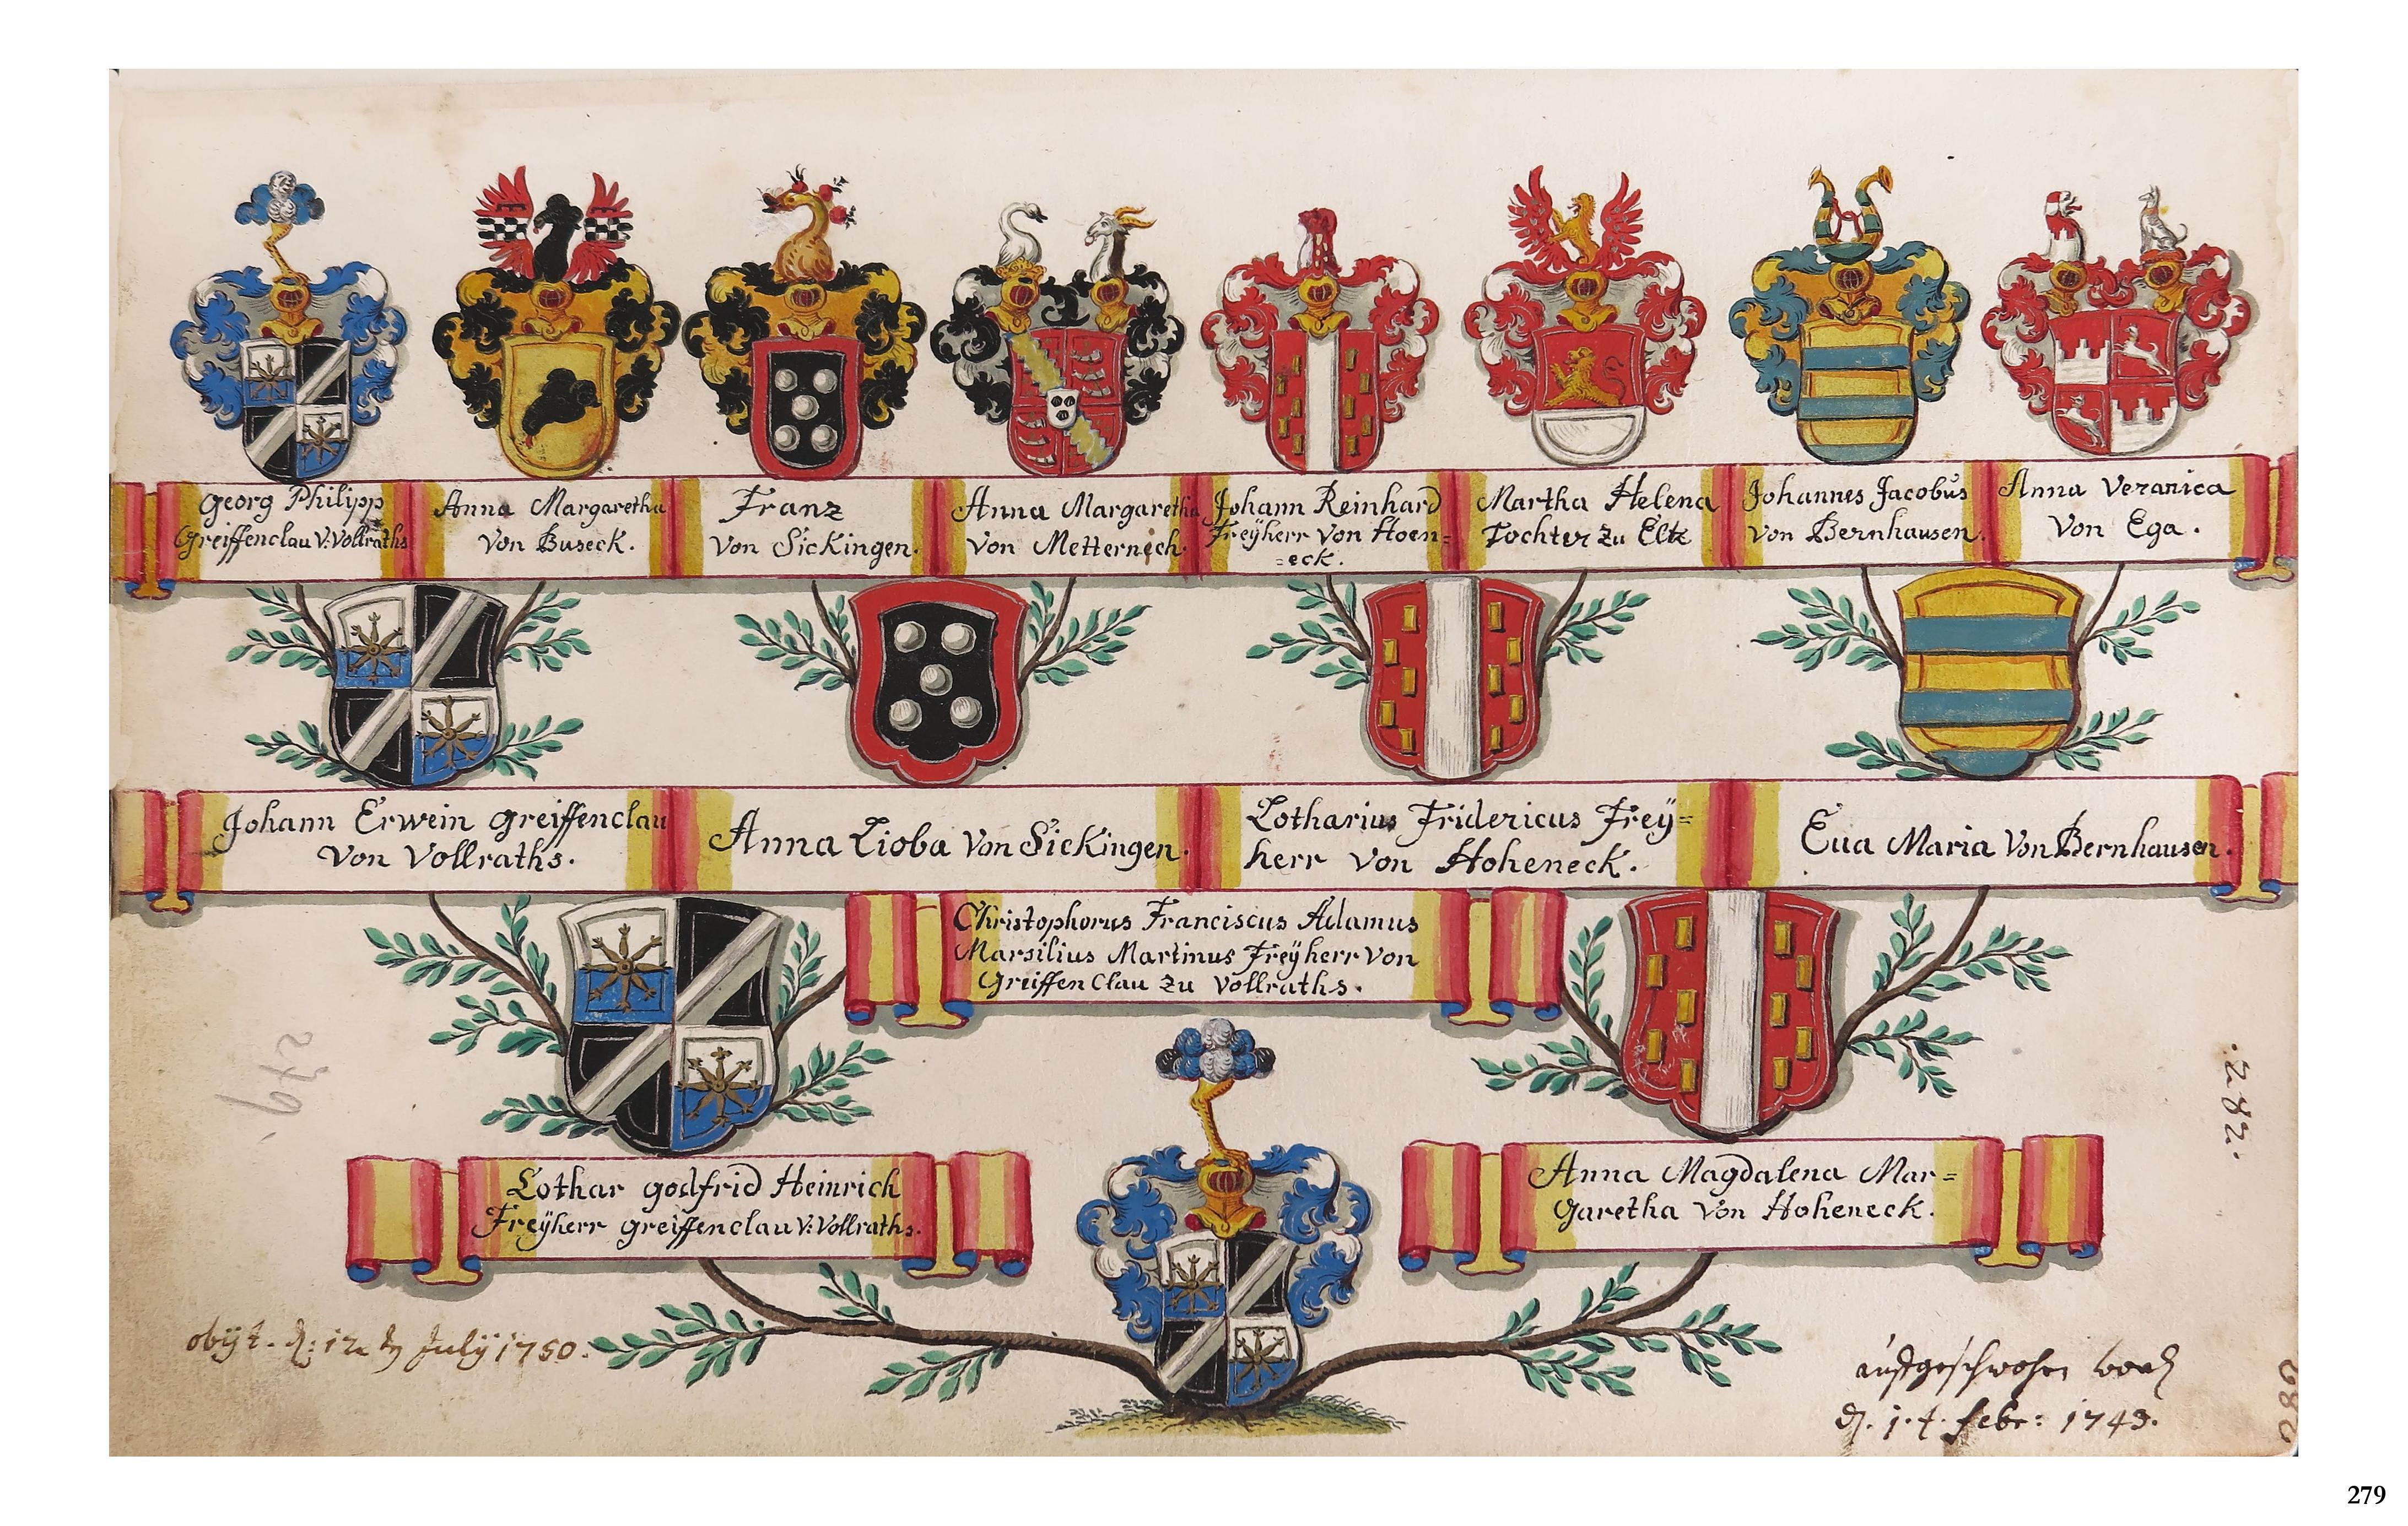 Georg Philipp
Greiffenclau V: Vollraths
Anna Margaretha
Von Buseck.
Franz
Von Sickingen.
Anna Margaretha
Von Metternich.
Johann Reinhard
Freÿherr Von Hoen=
=eck.
Martha Helena
Tochter zu Eltz
Johannes Jacobus
von Bernhausen.
Anna Veranica
Von Ega.
Johann Erwein greiffenclau
Von Vollraths.
Anna Lioba Von Sickingen.
Lotharius Fridericus Freÿ=
herr von Hoheneck.
Eua Maria Von Bernhausen.
Christophorus Franciscus Adamus
Marsilius Martinus Freÿherr Von
Greiffen Clau zu Vollraths.
Lothar godfrid Heinrich
Freÿherr greiffenclau V: Vollraths.
Anna Magdalena Mar=
garetha Von Hoheneck.
279
.282.
obijt. d: 12 July 1750.
auffgeschwohren
d. 14. febr: 1743.
282
279